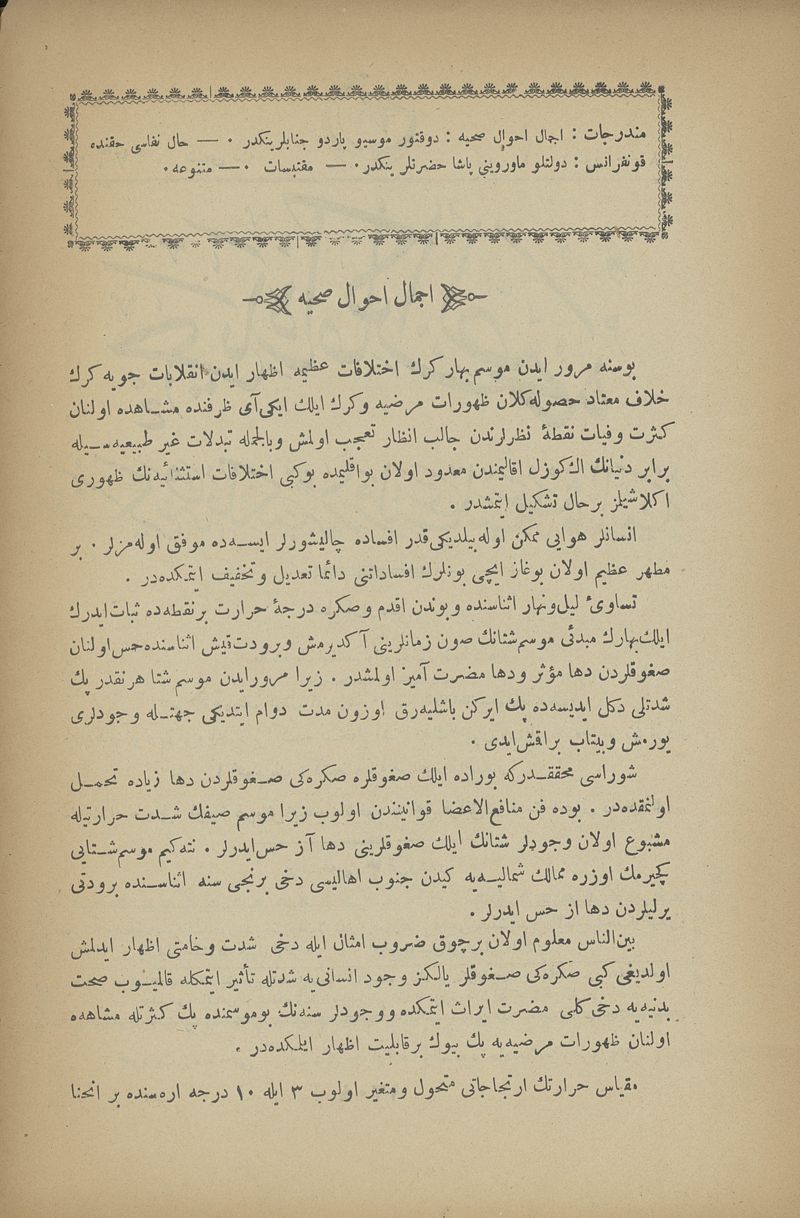 مندرجات : اجمال احوال صحیه : دوقتور موسیو پاردو جنابلرینکدر ٠ — حال نفاسی حقنده
قونفرانس : دولتلو ماورویني پاشا حضرتلرینکدر ٠ — مقتبسات ٠ — متنوعه ٠
اجمال احوال صحیه
بوسنه مرور ایدن موسم بهار کرك اختلافات عظیمه اظهار ایدن انقلابات جویه کرك
خلاف معتاد حصوله کلان ظهورات مرضیه وکرك ایلك ایکی آی ظرفنده مشاهده اولنان
کثرت وفیات نقطهٔ نظرلرندن جالب انظار تعجب اولمش وبالجمله تبدلات غیر طبیعیه سیله
برابر دنیانك اك کوزل اقالیمندن معدود اولان بواقلیمده بوکبی اختلافات استثنائیه نك ظهوری
اکلاشیلز برحال تشکیل ایتمشدر .
انسانلر هوایی ممکن اوله بیلدیکی قدر افساده چالیشورلر ایسه ده موفق اوله مزلر ٠ بر
مطهر عظیم اولان بوغاز ایچی بونلرك افساداتنی دائما تعدیل وتخفیف ایتمکده در .
تساویٔ لیل ونهار اثناسنده وبوندن اقدم وصکره درجهٔ حرارت برنقطه ده ثبات ایدرك
ایلك بهارك مبدئی موسم شتانك صون زمانلرینی آکدیرمش وبرودت قیش اثناسنده حس اولنان
صغوقلردن دها مؤثر ودها مضرت آمیز اولمشدر . زیرا مرور ایدن موسم شتا هرنقدر پك
شدتلی دکل ایدیسه ده پك ایرکن باشلیه رق اوزون مدت دوام ایتدیکی جهتله وجودلری
یورمش وبیتاب براقمش ایدی ٠
شوراسی محققدرکه بوراده ایلك صغوقلره صکره کی صغوقلردن دها زیاده تحمل
اولنمقده در . بوده فن منافع الاعضا قوانیندن اولوب زیرا موسم صیفك شدت حرارتیله
مشبوع اولان وجودلر شتانك ایلك صغوقلرینی دها آز حس ایدرلر . نته کیم موسم شتایی
کچیرمك اوزره ممالك شمالیه یه کیدن جنوب اهالیسی دخی برنجی سنه اثناسنده برودتی
یرلیلردن دها از حس ایدرلر .
بین الناس معلوم اولان برچوق ضروب امثال ایله دخی شدت وخامتی اظهار ایدلمش
اولدیغی کبی صکره کی صغوقلر یالکز وجود انسانی یه شدتله تأثیر ایتمکله قالمیوب صحت
بدنیه یه دخی کلی مضرت ایراث ایتمکده ووجودلر سنه نك بوموسمنده پك کثرتله مشاهده
اولنان ظهورات مرضیه یه پك بیوك برقابلیت اظهار ایلمکده در .
مقیاس حرارتك ارتجاجاتی متحول ومتغیر اولوب ٣ ایله ١٠ درجه اره سنده بر انحنا